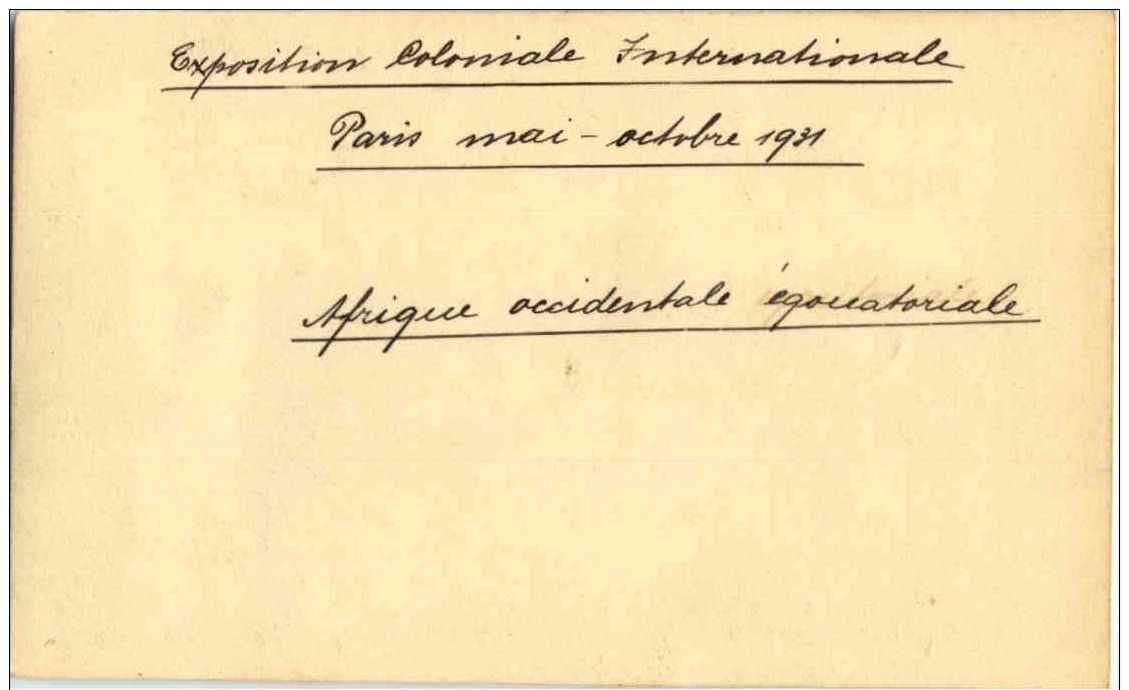 Exposition Coloniale Internationale
Paris mai - octobre 1931
Afrique occidentale égouatoriale